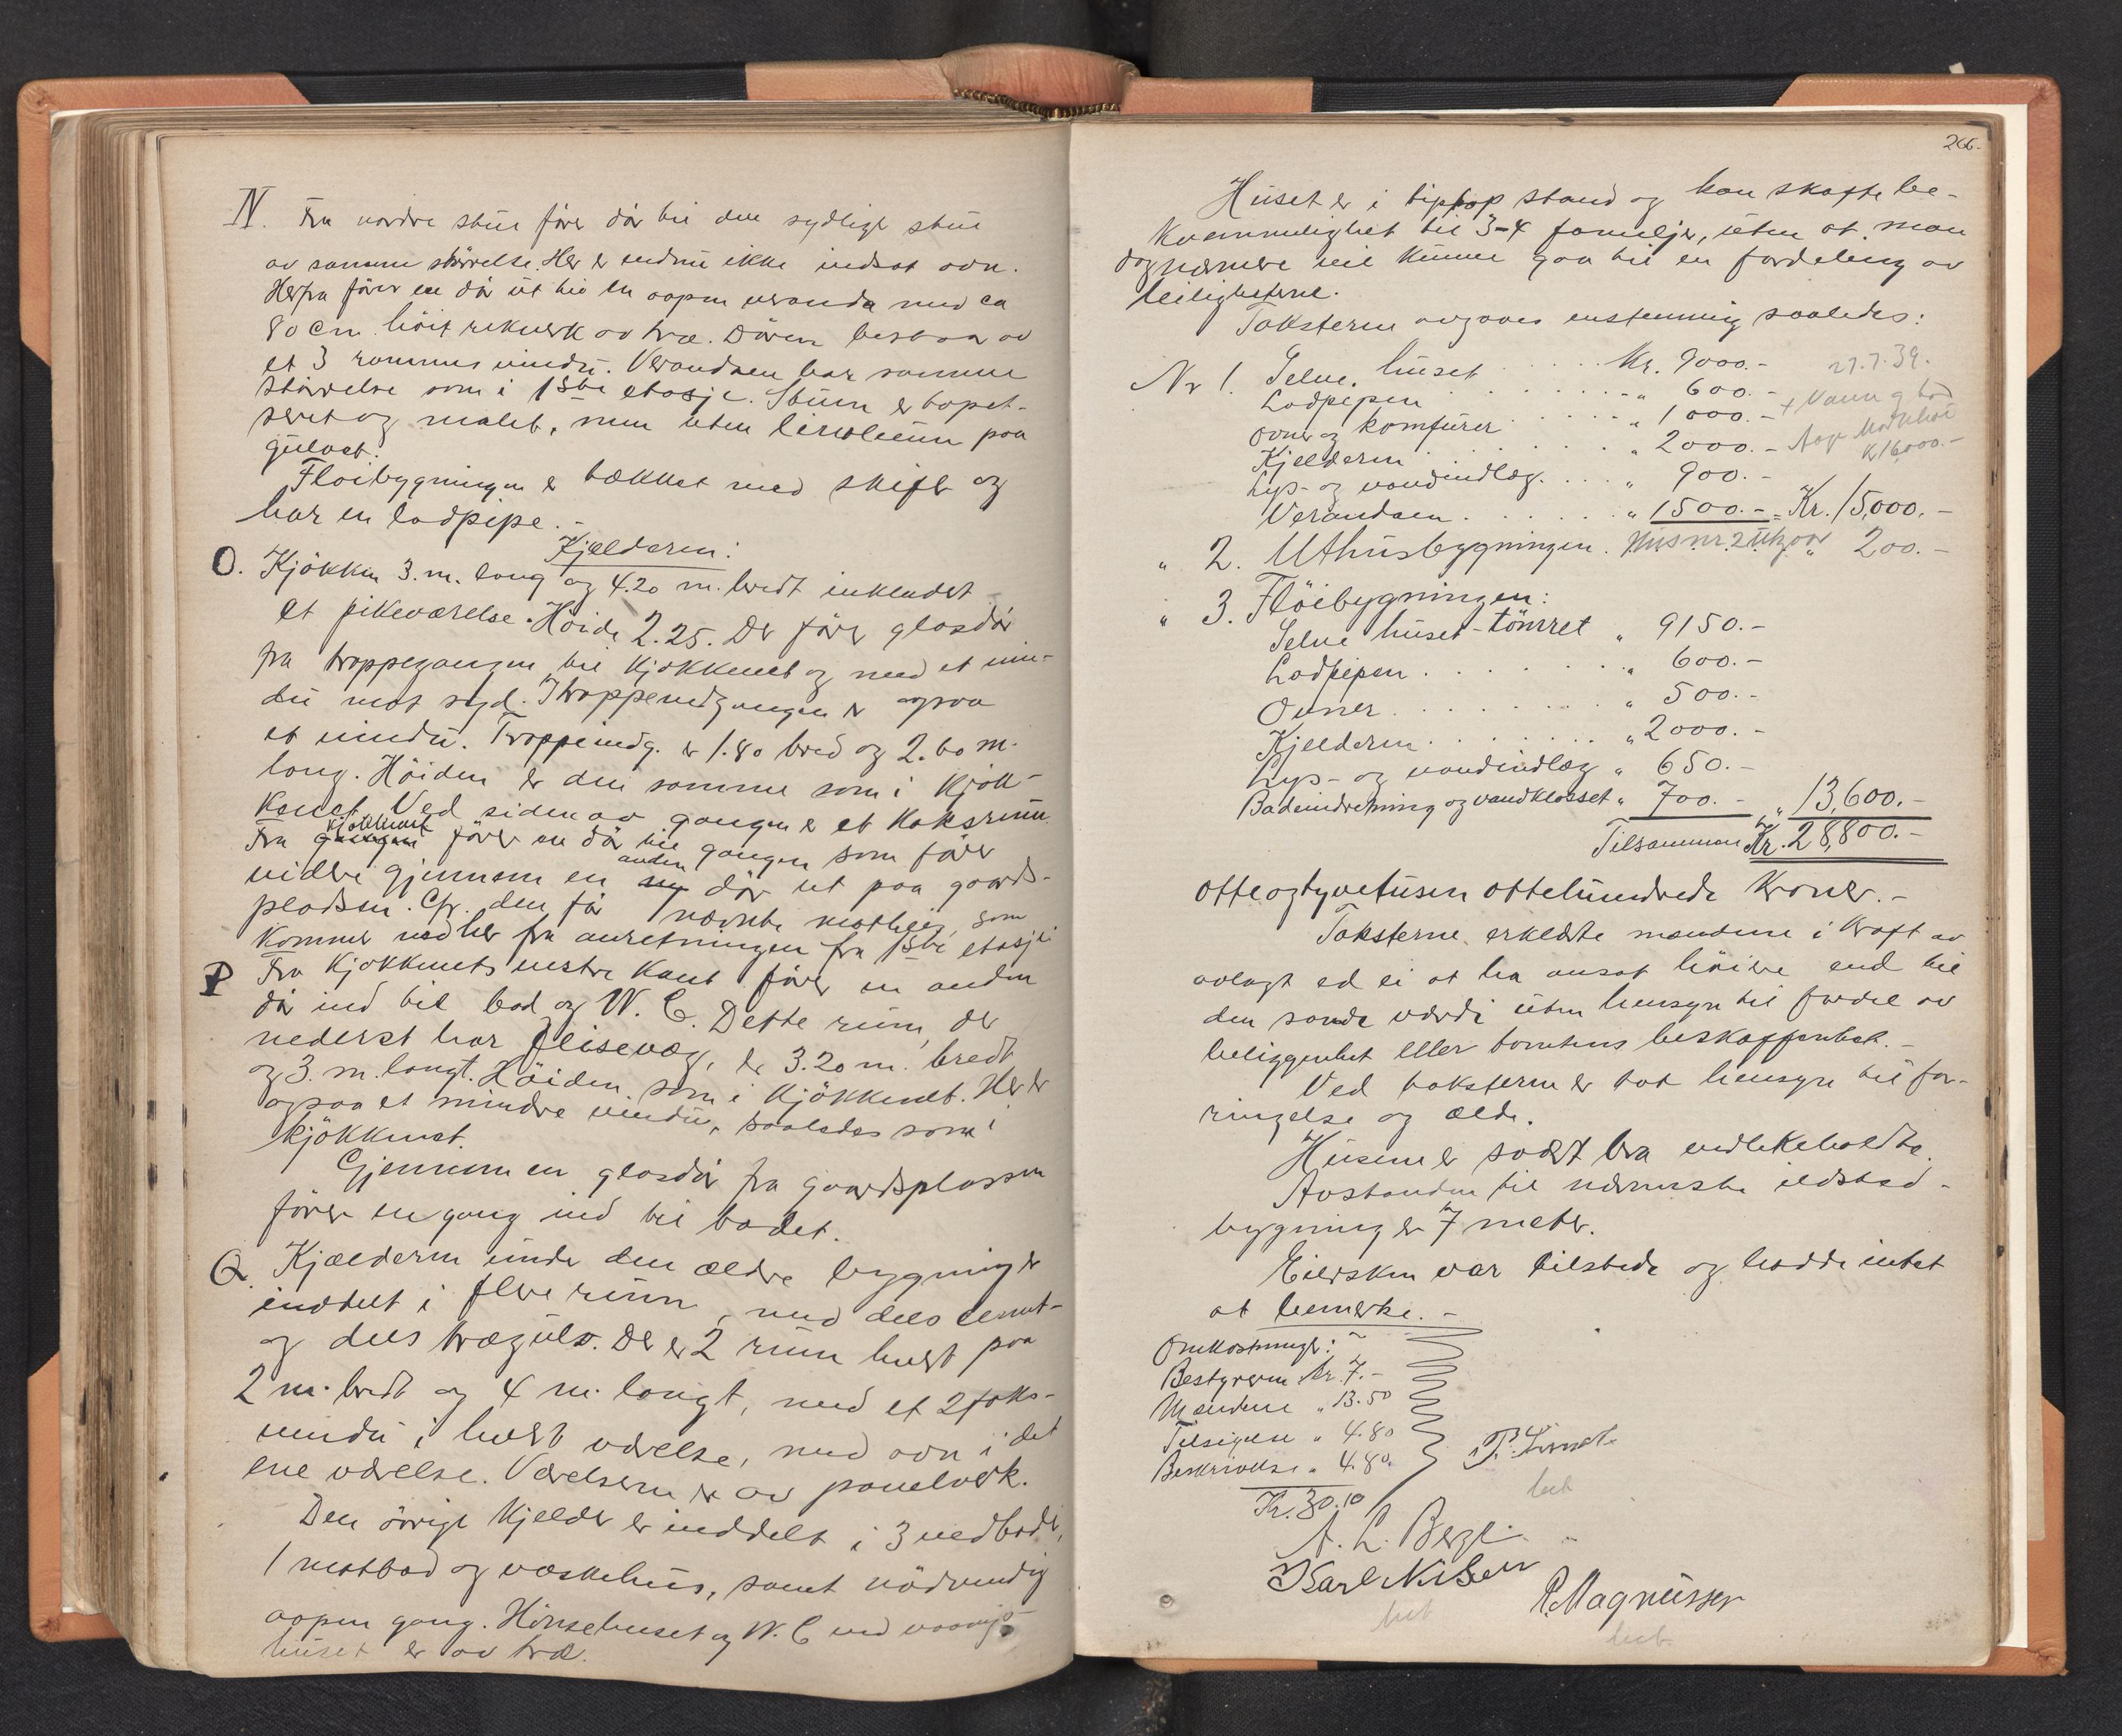 N. Fra nordre stue fører dør til den sydlige stue
av samme størrelse. Her er endnu ikke indsat ovn.
Herfra fører en dør ut til en aapen veranda med ca
80 cm. høit rekverk av træ. Døren bestaar av
et 3 rammers vindu. Verandaen har samme
størrelse som i 1ste etasje. Stuen er tapet-
seret og malet, men uten linoleum paa
gulvet.
Fløibygningen er tækket med skifer og
har en ladpipe. -
Kjælderen:
O. Kjøkken 3. m. lang og 4.20 m. bredt inkludert
et pikeværelse. Høide 2.25. Der fører glasdør
fra trappegangen til kjøkkenet og med et vin-
du mot syd. I trappeindgangen er ogsaa
et vindu. Trappeindg. er 1.80 bred og 2.60 m.
lang. Høiden er den samme som i kjøk-
kenet. Ved siden av gangen er et koksrum.
Fra kjøkkenet fører en dør til gangen som fører
videre gjennem en anden dør ut paa gaards-
pladsen. Cfr. den før nævnte matheis, som
kommer ned her fra anretningen fra 1ste etasje
P Fra kjøkkenets vestre kant fører en anden
dør ind til bad og W. C. Dette rum, der
nederst har flisevæg, er 3.20 m. bredt
og 3. m. langt. Høiden som i kjøkkenet. Her er
ogsaa et mindre vindu, saaledes som i
kjøkkenet.
Gjennem en glasdør fra gaardsplassen
fører en gang ind til badet.
Q. Kjælderen under den ældre bygning er
inddelt i flere rum, med dels cemt-
og dels trægulv. Der er 2 rum hvert paa
2 m. bredt og 4 m. langt, med et 2 faks-
vindu i hvert værelse, med ovn i det
ene værelse. Værelserne er av panelverk.
Den øvrige kjelder er inddelt i 3 vedboder,
1 matbod og vaskehus, samt nødvendig
aapen gang. Hønsehuset og W. C ved
huset er av træ.
266.
Huset er i tiptop stand og kan skaffe be-
kvemmelighet til 3-4 familjer, uten at man
dog nærmere vil kunne gaa til en fordeling av
leiligheterne.
Taksterne avgaves enstemmig saaledes:
Nr 1. Selve huset . . . . Kr. 9000.- 27.7.39.
Ladpipen . . . . . . " 600.- + Vann og bad
Ovner og komfurer . . . . " 1000.-
Kjelderen . . . . . . . " 2000.- K 16000.-
Lys- og vandindlæg. . . . " 900.-
Verandaen . . . . . . " 1500.- = Kr. 15,000.-
" 2. Uthusbygningen. Hus nr 2 utgaar " 200.-
" 3. Fløibygningen:
Selve huset - tømret " 9150.-
Ladpipen . . . . . . " 600.-
Ovner . . . . . . . " 500.-
Kjelderen . . . . . . " 2000.-
Lys- og vandindlæg " 650.-
Badeindretning og vandklosset " 700.- " 13,600.-
Tilsammen Kr. 28,800.-
otteogtyvetusen ottehundrede Kroner. -
Taksterne erklærte mændene i kraft av
avlagt ed ei at ha ansat høiere end til
den sande værdi uten hensyn til fordel av
beliggenhet eller tomtens beskaffenhet. -
Ved taksterne er tat hensyn til for-
ringelse og ælde.
Husene er svært bra vedlikeholdte.
Avstanden til nærmeste ildsted-
bygning er 7 meter.
Eiersken var tilstede og hadde intet
at bemerke. -
Omkostninger:
Bestyreren kr. 7.-
Mændene " 13.50
Tilsigelse " 4.80
Beskrivelse " 4.80.
Kr. 30.10
A. L. Berge
Karl Nilsen
R. Magnussen